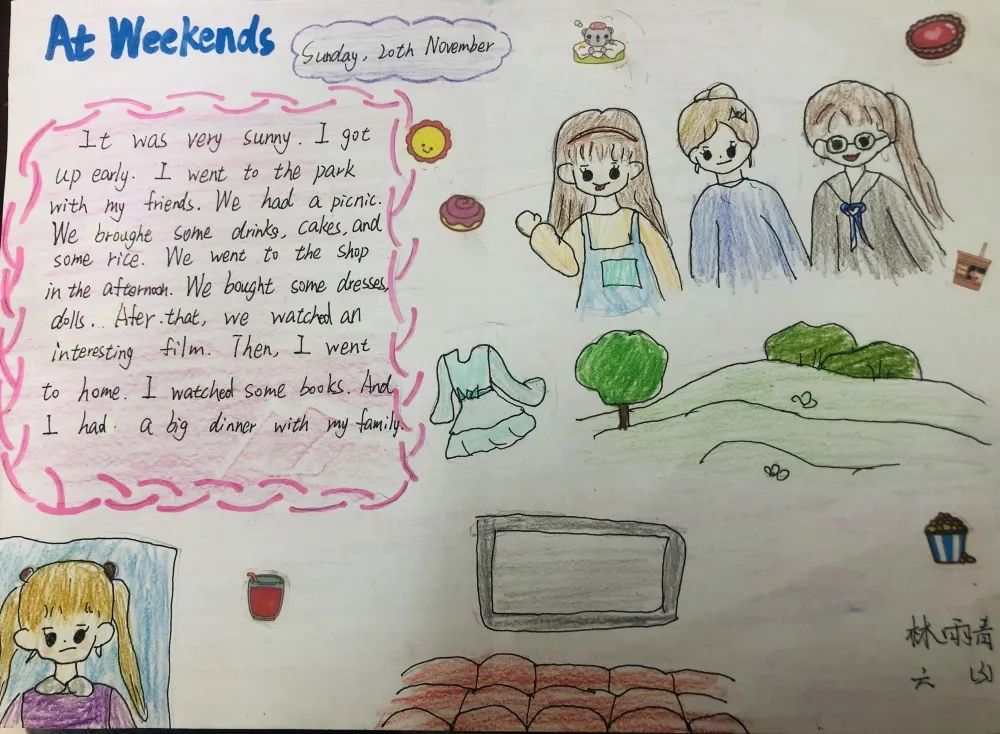 At Weekends
Sunday, 20th November
It was very sunny. I got
up early. I went to the park
with my friends. We had a picnic.
We brought some drinks, cakes, and
some rice. We went to the shop
in the afternoon. We bought some dresses,
dolls... Afer that, we watched an
interesting film. Then, I went
to home. I watched some books. And
I had a big dinner with my family.
林雨晴